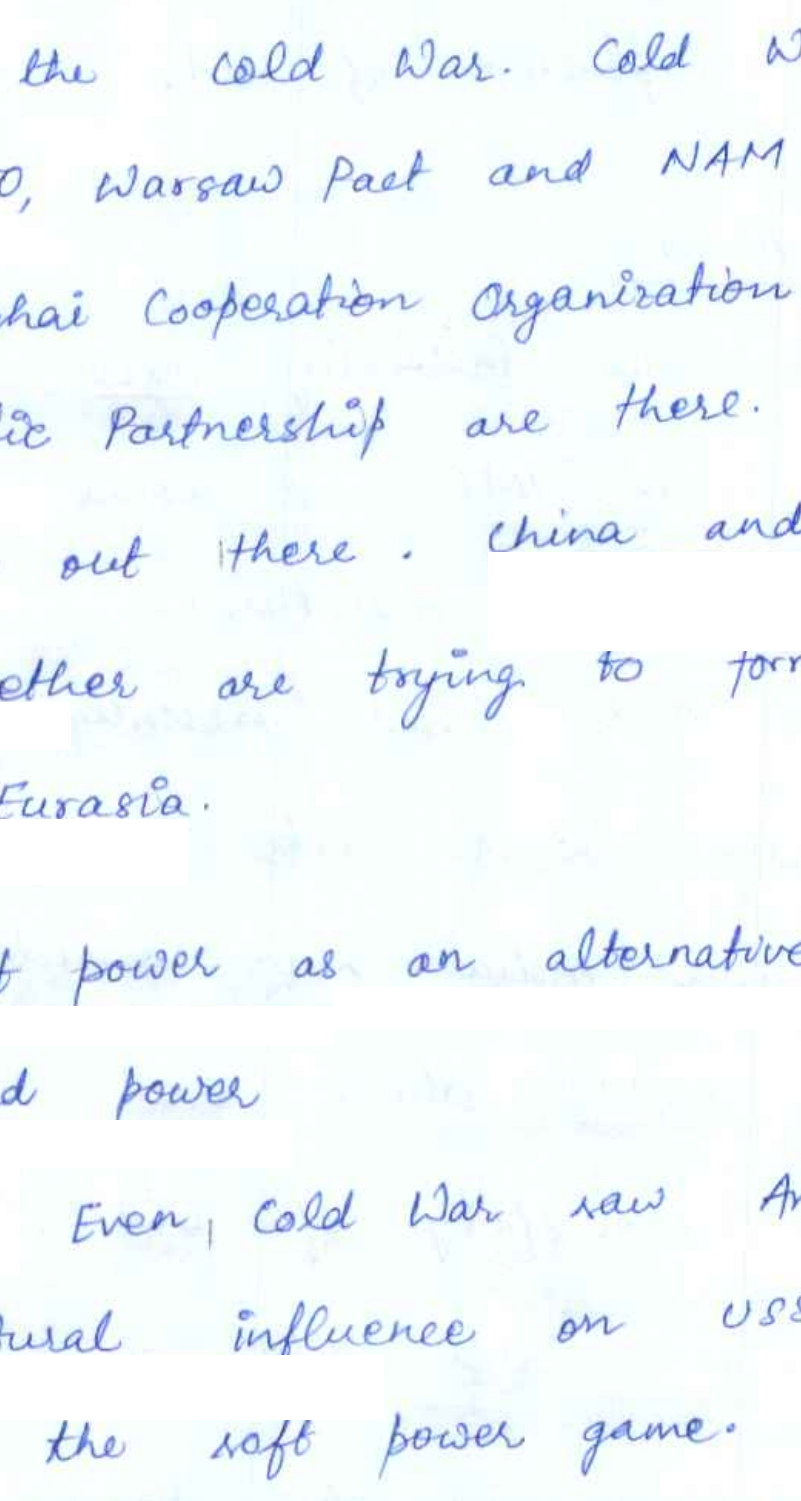 the Cold War. Cold W
O, Warsaw Pact and NAM
hai Cooperation Organization
ic Partnership are there.
out there. China and
ether are trying to form
Eurasia.
f power as an alternative
d power
Even, Cold War saw Am
tural influence on USS
the soft power game.